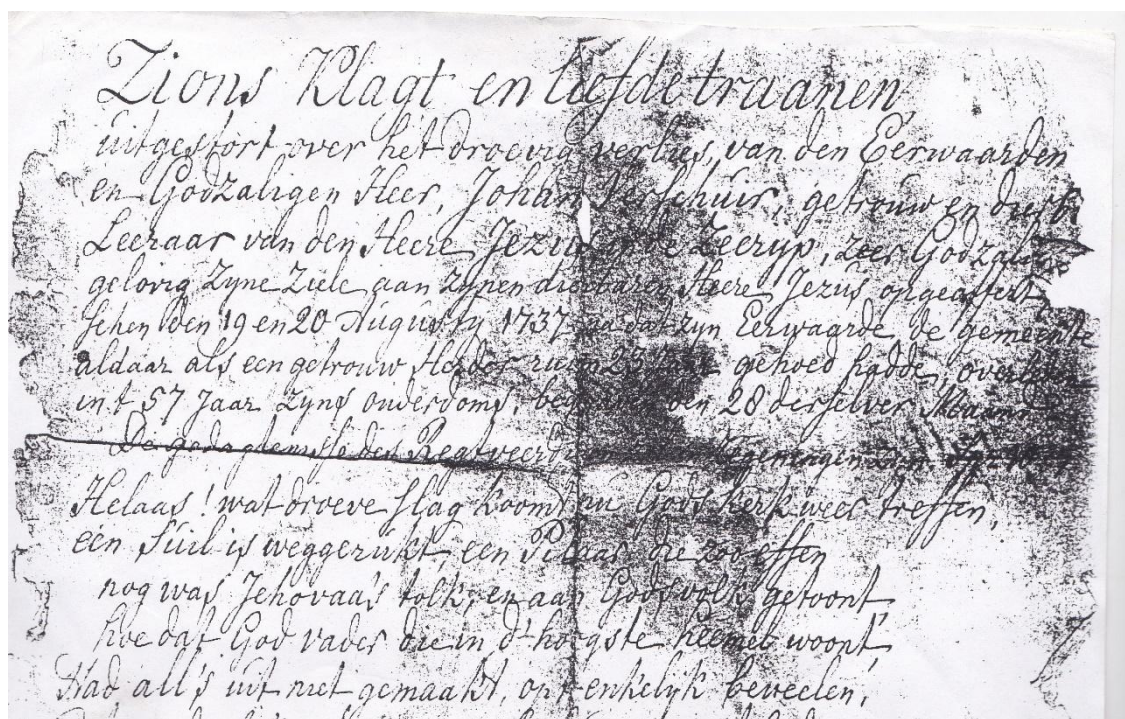 Zions Klagt en liefdetraanen
uitgestort over het droevig verlies, van den Eerwaarden
en Godzaligen Heer, Johan Verschuir, getrouw en
Leeraar van den Heere Jezus op de Zeeryp, zeer Godzalig
gelovig Zyne Ziele aan Zynen dierbaren Heere Jezus opgeoffert
schen den 19 en 20 Augusty 1737 na dat zyn Eerwaarde de gemeente
aldaar als een getrouw Herder ruim 23 Jaar gehoed hadde, overleden
in t 57 Jaar Zyns ouderdoms, den 28 derselver Maand
De gedagtenisse des Regtveerd Zegeningen
Helaas! wat droeve slag koomt nu Gods kerk weer treffen,
een Suil is weggerukt, een Pilaar die zoo effen
nog was Jehovaa's tolk, en aan Gods volk getoont
hoe dat God vader die in d' hoogste heemel woont,
Had all's uit niet gemaakt, beveelen,